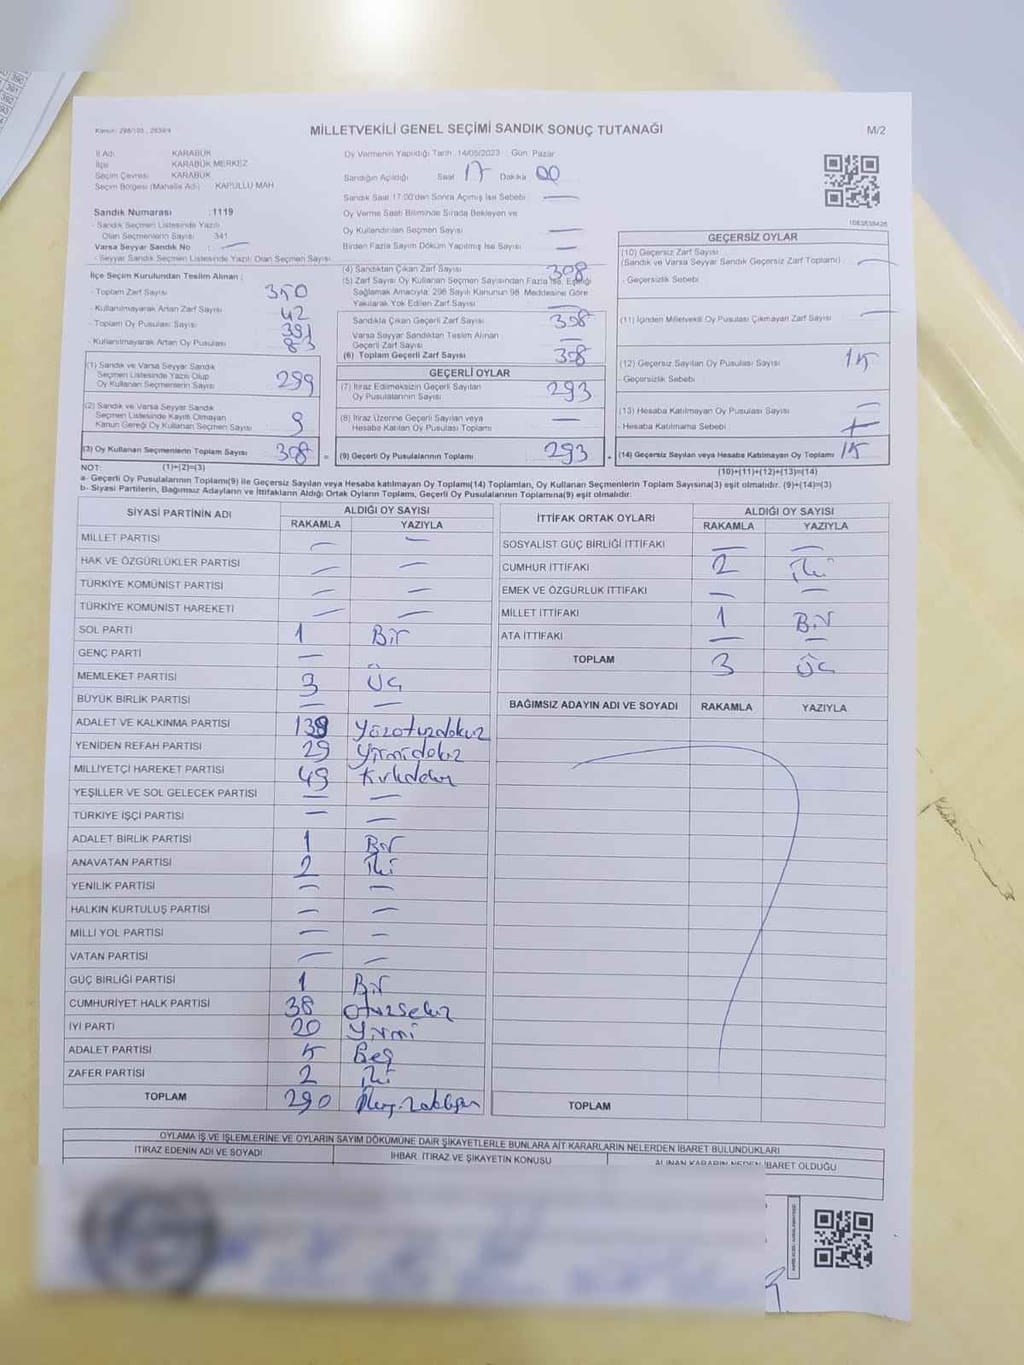 Kanun: 298/103 , 2839/4
MİLLETVEKİLİ GENEL SEÇİMİ SANDIK SONUÇ TUTANAĞI
M/2
İl Adı KARABÜK
İlçe KARABÜK MERKEZ
Seçim Çevresi KARABÜK
Seçim Bölgesi (Mahalle Adı) KAPULLU MAH
Sandık Numarası :1119
- Sandık Seçmen Listesinde Yazılı
Olan Seçmenlerin Sayısı 341
Varsa Seyyar Sandık No : —
- Seyyar Sandık Seçmen Listesinde Yazılı Olan Seçmen Sayısı
Oy Vermenin Yapıldığı Tarih :14/05/2023 Gün: Pazar
Sandığın Açıldığı Saat 17 Dakika 00
Sandık Saat 17:00'den Sonra Açılmış İse Sebebi —
Oy Verme Saati Bitiminde Sırada Bekleyen ve
Oy Kullandırılan Seçmen Sayısı —
Birden Fazla Sayım Döküm Yapılmış İse Sayısı —
İlçe Seçim Kurulundan Teslim Alınan ;
- Toplam Zarf Sayısı 350
- Kullanılmayarak Artan Zarf Sayısı 42
- Toplam Oy Pusulası Sayısı 391
- Kullanılmayarak Artan Oy Pusulası 83
(1) Sandık ve Varsa Seyyar Sandık
Seçmen Listesinde Yazılı Olup
Oy Kullanan Seçmenlerin Sayısı 299
(2) Sandık ve Varsa Seyyar Sandık
Seçmen Listesinde Kayıtlı Olmayan
Kanun Gereği Oy Kullanan Seçmen Sayısı 9
(3) Oy Kullanan Seçmenlerin Toplam Sayısı 308
(4) Sandıktan Çıkan Zarf Sayısı 308
(5) Zarf Sayısı Oy Kullanan Seçmen Sayısından Fazla İse, Eşitliği
Sağlamak Amacıyla; 298 Sayılı Kanunun 98. Maddesine Göre
Yakılarak Yok Edilen Zarf Sayısı —
Sandıkta Çıkan Geçerli Zarf Sayısı 308
Varsa Seyyar Sandıktan Teslim Alınan
Geçerli Zarf Sayısı —
(6) Toplam Geçerli Zarf Sayısı 308
GEÇERLİ OYLAR
(7) İtiraz Edilmeksizin Geçerli Sayılan
Oy Pusulalarının Sayısı 293
(8) İtiraz Üzerine Geçerli Sayılan veya
Hesaba Katılan Oy Pusulası Toplamı —
= (9) Geçerli Oy Pusulalarının Toplamı 293
GEÇERSİZ OYLAR
(10) Geçersiz Zarf Sayısı
(Sandık ve Varsa Seyyar Sandık Geçersiz Zarf Toplamı) —
- Geçersizlik Sebebi
(11) İçinden Milletvekili Oy Pusulası Çıkmayan Zarf Sayısı —
(12) Geçersiz Sayılan Oy Pusulası Sayısı 15
- Geçersizlik Sebebi
(13) Hesaba Katılmayan Oy Pusulası Sayısı —
- Hesaba Katılmama Sebebi
(14) Geçersiz Sayılan veya Hesaba Katılmayan Oy Toplamı 15
NOT: (1)+(2)=(3) (10)+(11)+(12)+(13)=(14)
a- Geçerli Oy Pusulalarının Toplamı(9) ile Geçersiz Sayılan veya Hesaba katılmayan Oy Toplamı(14) Toplamları, Oy Kullanan Seçmenlerin Toplam Sayısına(3) eşit olmalıdır. (9)+(14)=(3)
b- Siyasi Partilerin, Bağımsız Adayların ve İttifakların Aldığı Ortak Oyların Toplamı, Geçerli Oy Pusulalarının Toplamına(9) eşit olmalıdır.
SİYASİ PARTİNİN ADI ALDIĞI OY SAYISI
RAKAMLA YAZIYLA
MİLLET PARTİSİ — —
HAK VE ÖZGÜRLÜKLER PARTİSİ — —
TÜRKİYE KOMÜNİST PARTİSİ — —
TÜRKİYE KOMÜNİST HAREKETİ — —
SOL PARTİ 1 Bir
GENÇ PARTİ —
MEMLEKET PARTİSİ 3 Üç
BÜYÜK BİRLİK PARTİSİ — —
ADALET VE KALKINMA PARTİSİ 139 Yüzotuzdokuz
YENİDEN REFAH PARTİSİ 29 Yirmidokuz
MİLLİYETÇİ HAREKET PARTİSİ 49 Kırkdokuz
YEŞİLLER VE SOL GELECEK PARTİSİ — —
TÜRKİYE İŞÇİ PARTİSİ — —
ADALET BİRLİK PARTİSİ 1 Bir
ANAVATAN PARTİSİ 2 İki
YENİLİK PARTİSİ — —
HALKIN KURTULUŞ PARTİSİ — —
MİLLİ YOL PARTİSİ — —
VATAN PARTİSİ — —
GÜÇ BİRLİĞİ PARTİSİ 1 Bir
CUMHURİYET HALK PARTİSİ 38 otuzsekiz
İYİ PARTİ 20 Yirmi
ADALET PARTİSİ 5 Beş
ZAFER PARTİSİ 2 İki
TOPLAM 290
İTTİFAK ORTAK OYLARI ALDIĞI OY SAYISI
RAKAMLA YAZIYLA
SOSYALİST GÜÇ BİRLİĞİ İTTİFAKI — —
CUMHUR İTTİFAKI 2 İki
EMEK VE ÖZGÜRLÜK İTTİFAKI — —
MİLLET İTTİFAKI 1 Bir
ATA İTTİFAKI — —
TOPLAM 3 Üç
BAĞIMSIZ ADAYIN ADI VE SOYADI RAKAMLA YAZIYLA
TOPLAM
OYLAMA İŞ VE İŞLEMLERİNE VE OYLARIN SAYIM DÖKÜMÜNE DAİR ŞİKAYETLERLE BUNLARA AİT KARARLARIN NELERDEN İBARET BULUNDUKLARI
İTİRAZ EDENİN ADI VE SOYADI İHBAR, İTİRAZ VE ŞİKAYETİN KONUSU ALINAN KARARIN NEDEN İBARET OLDUĞU